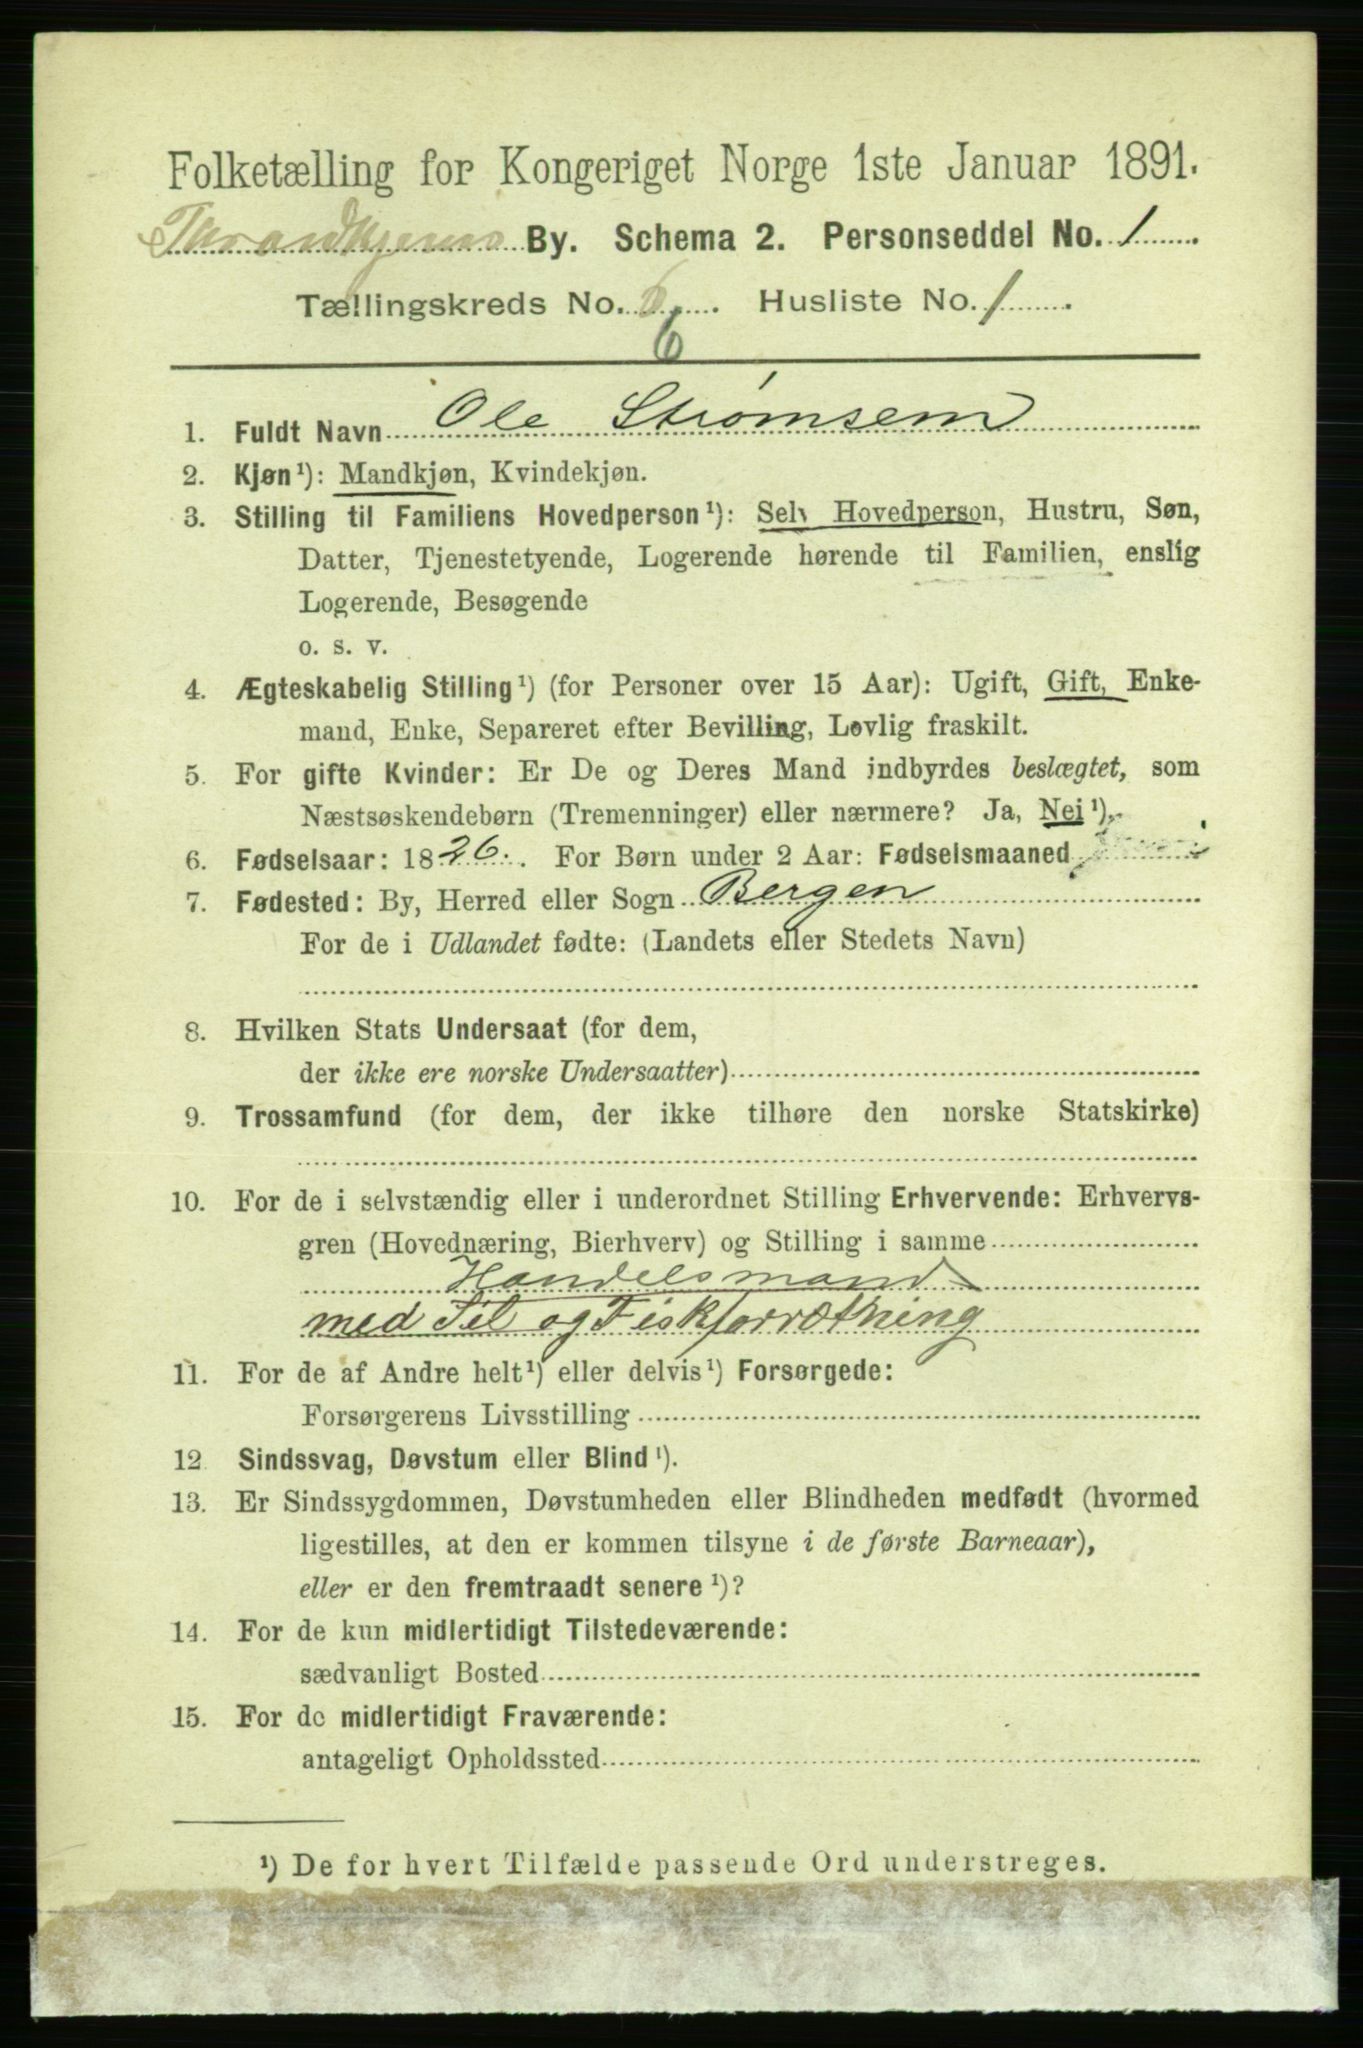 Folketælling for Kongeriget Norge 1ste Januar 1891.
Throndhjems By. Schema 2. Personseddel No. 1
Tællingskreds No. 6. Husliste No. 1
6
1. Fuldt Navn Ole Strømsem
2. Kjøn¹): Mandkjøn, Kvindekjøn.
3. Stilling til Familiens Hovedperson¹): Selv Hovedperson, Hustru, Søn,
Datter, Tjenestetyende, Logerende hørende til Familien, enslig
Logerende, Besøgende
o. s. v.
4. Ægteskabelig Stilling¹) (for Personer over 15 Aar): Ugift, Gift, Enke-
mand, Enke, Separeret efter Bevilling, Lovlig fraskilt.
5. For gifte Kvinder: Er De og Deres Mand indbyrdes beslægtet, som
Næstsøskendebørn (Tremenninger) eller nærmere? Ja, Nei¹).
6. Fødselsaar: 1826. For Børn under 2 Aar: Fødselsmaaned
7. Fødested: By, Herred eller Sogn Bergen
For de i Udlandet fødte: (Landets eller Stedets Navn)
8. Hvilken Stats Undersaat (for dem,
der ikke ere norske Undersaatter)
9. Trossamfund (for dem, der ikke tilhøre den norske Statskirke)
10. For de i selvstændig eller i underordnet Stilling Erhvervende: Erhvervs-
gren (Hovednæring, Bierhverv) og Stilling i samme
Handelsmand
med Sil og Fiskforrætning
11. For de af Andre helt¹) eller delvis¹) Forsørgede:
Forsørgerens Livsstilling
12 Sindssvag, Døvstum eller Blind¹).
13. Er Sindssygdommen, Døvstumheden eller Blindheden medfødt (hvormed
ligestilles, at den er kommen tilsyne i de første Barneaar),
eller er den fremtraadt senere¹)?
14. For de kun midlertidigt Tilstedeværende:
sædvanligt Bosted
15. For de midlertidigt Fraværende:
antageligt Opholdssted
¹) De for hvert Tilfælde passende Ord understreges.